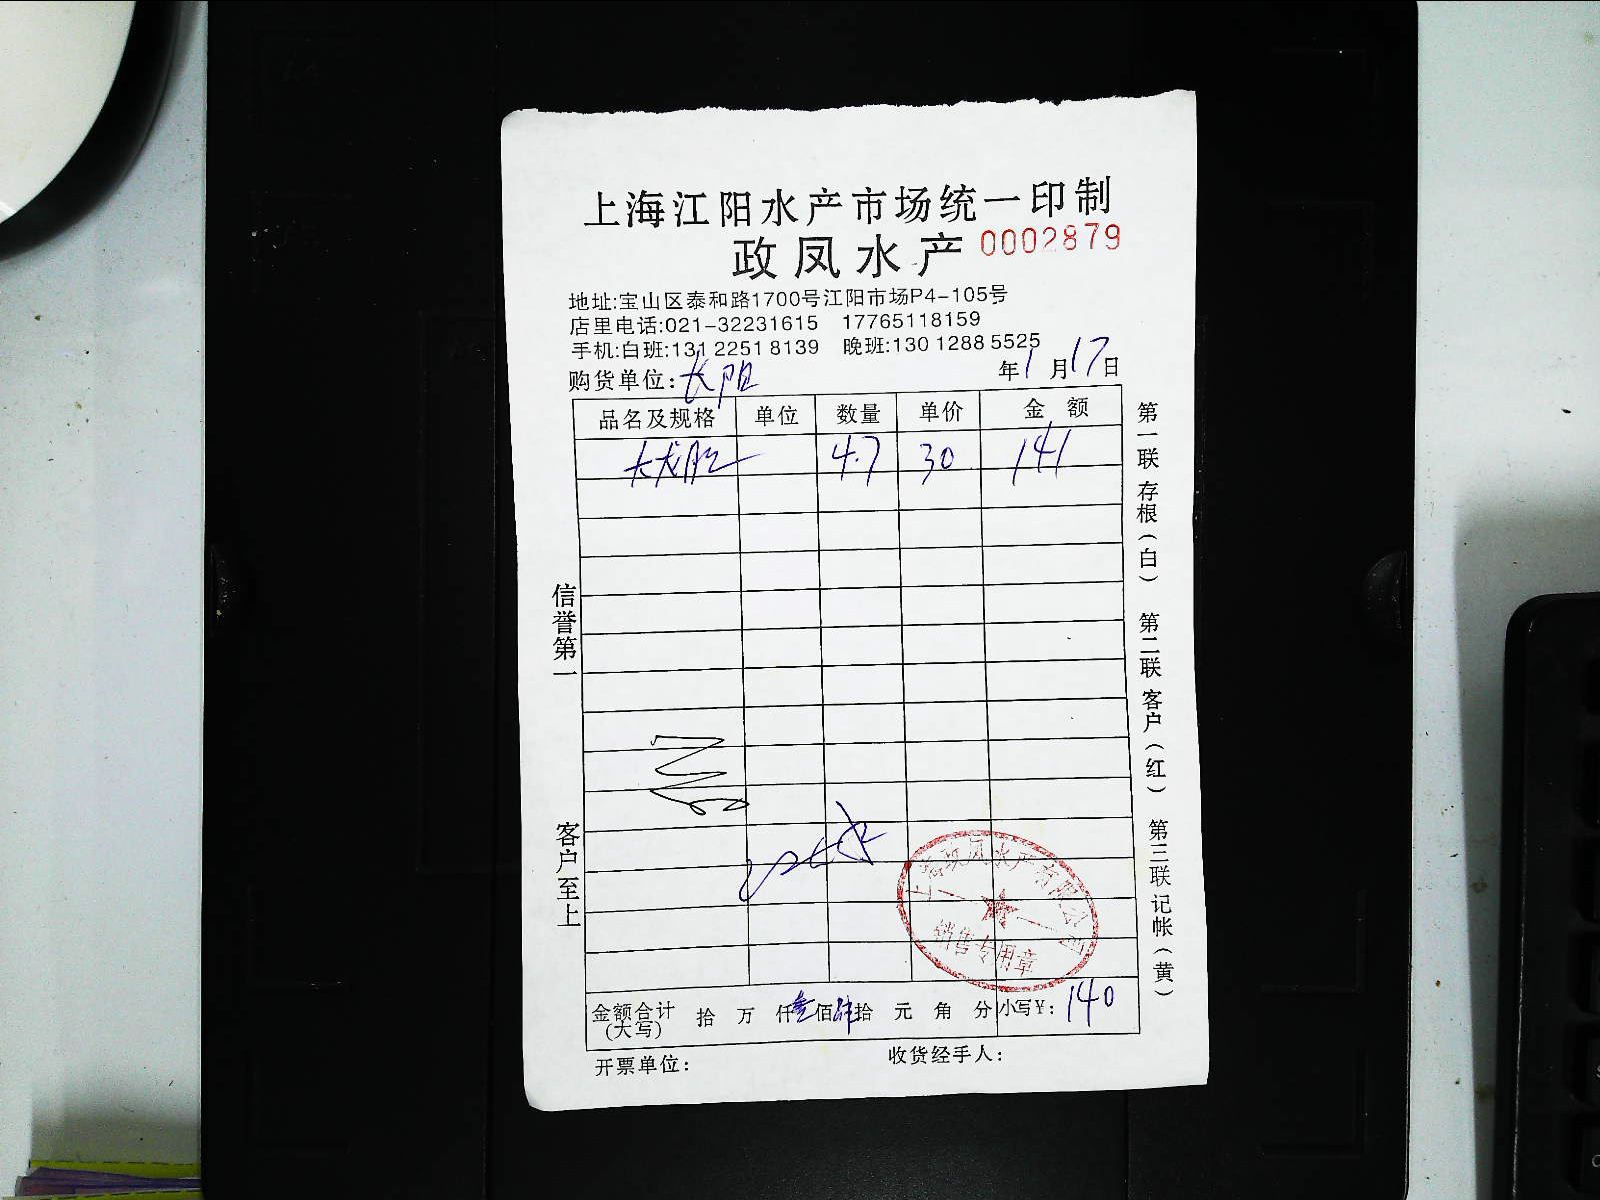 上海江阳水产市场统一印制
政凤水产 0002879
地址:宝山区泰和路1700号江阳市场P4-105号
店里电话:021-32231615 17765118159
手机:白班:131 2251 8139 晚班:130 1288 5525
购货单位: 长阳 年1月17日
品名及规格 单位 数量 单价 金额
大龙 4.7 30 141
金额合计(大写) 拾 万 仟壹佰肆拾 元 角 分 小写¥: 140
开票单位: 收货经手人:
信誉第一
客户至上
第一联 存根(白)
第二联 客户(红)
第三联 记帐(黄)
政凤水产有限公司
销售专用章